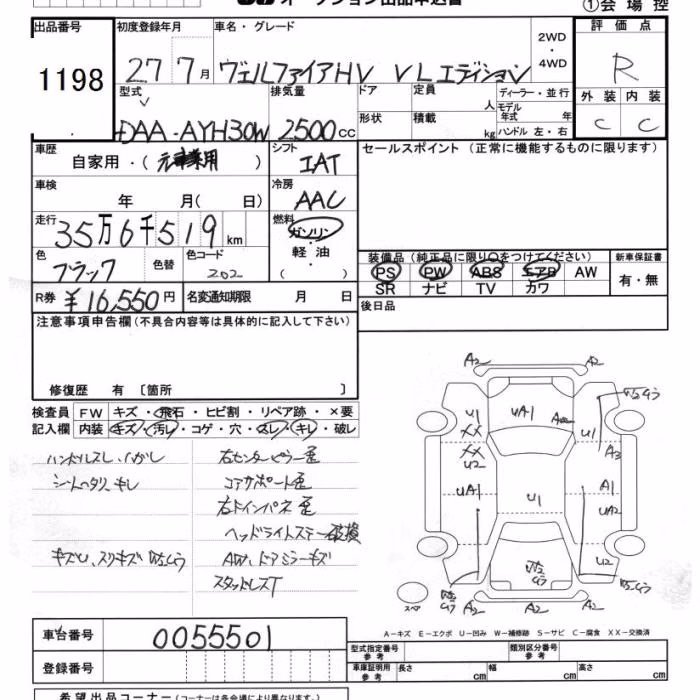 オークション出品申込書
①会場控
出品番号 初度登録年月 車名・グレード 評価点
1198
27 7月 ヴェルファイアHV VLエディション
2WD・4WD
R
型式 排気量 ドア 定員 人 ディーラー・並行 外装 内装
DAA-AYH30W 2500cc
形状 積載 kg モデル年式 年 ハンドル 左・右
C C
車歴 自家用・( ) シフト IAT
セールスポイント (正常に機能するものに限ります)
車検 年 月( 日) 冷房 AAC
走行 35万6千519km 燃料 ガソリン・軽油・( )
色 ブラック 色替 色コード 202
装備品 (純正品に限り○をつけてください) 新車保証書
PS PW ABS エアB AW 有・無
SR ナビ TV カワ
R券 ¥16,550円 名変通知期限 月 日
後日品
注意事項申告欄(不具合内容等は具体的に記入して下さい)
修復歴 有〔箇所 〕
検査員 FW キズ・飛石・ヒビ割・リペア跡・×要
記入欄 内装 キズ・汚レ・コゲ・穴・スレ・キレ・破レ
ハンドルスレ、ハガレ 右センターピラー歪
シートヘタリ、キレ コアサポート歪
右ドインパネ歪
ヘッドライトステー破損
キズU、スリキズ AW、ドアミラーキズ
スタッドレスT
A2 A2
U1 UA1 XX XX U2 U1 A3
UA1 U1 A1 UA2
U2
A2 A2
スペア
A-キズ E-エクボ U-凹み W-補修跡 S-サビ C-腐食 XX-交換済
車台番号 0055501
型式指定番号 参考 類別区分番号 参考
登録番号
車庫証明用 参考 長さ cm 幅 cm 高さ cm
希望出品コーナー (コーナーは各会場により異なります。)